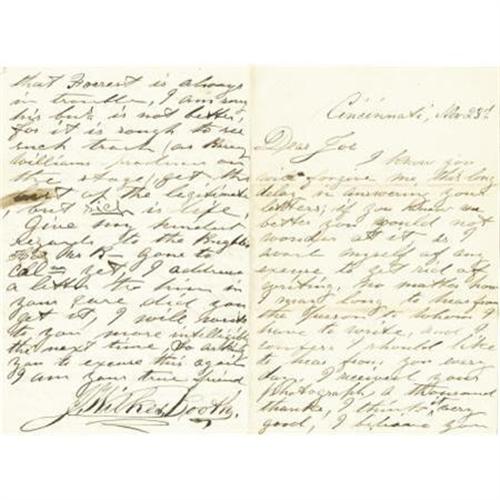 Cincinnati, Nov 23rd
Dear Joe
I know you
will forgive me, this long
delay in answering your
letters; if you knew me
better you would not
wonder at it as I
avail myself of any
excuse to get rid of
writing, no matter how
I may long to hear from
the person to whom I
have to write, and I
confess I should like
to hear from you every
day. I received your
Photograph, a thousand
thanks, I think it very
good, I believe you
that Forrest is always
in trouble, I am sorry
his bus is not better,
for it is rough to see
such trash (as Barney
Williams produces on
the stage) get the
of the legitimate
but such is life,
Give my kindest
regards to the
Mr B— gone to
Cal— yet, I address
a letter to him in
your care did you
get it, I will write
to you more intelligibly
the next time So asking
you to excuse this again
I am your true friend
J. Wilkes Booth.